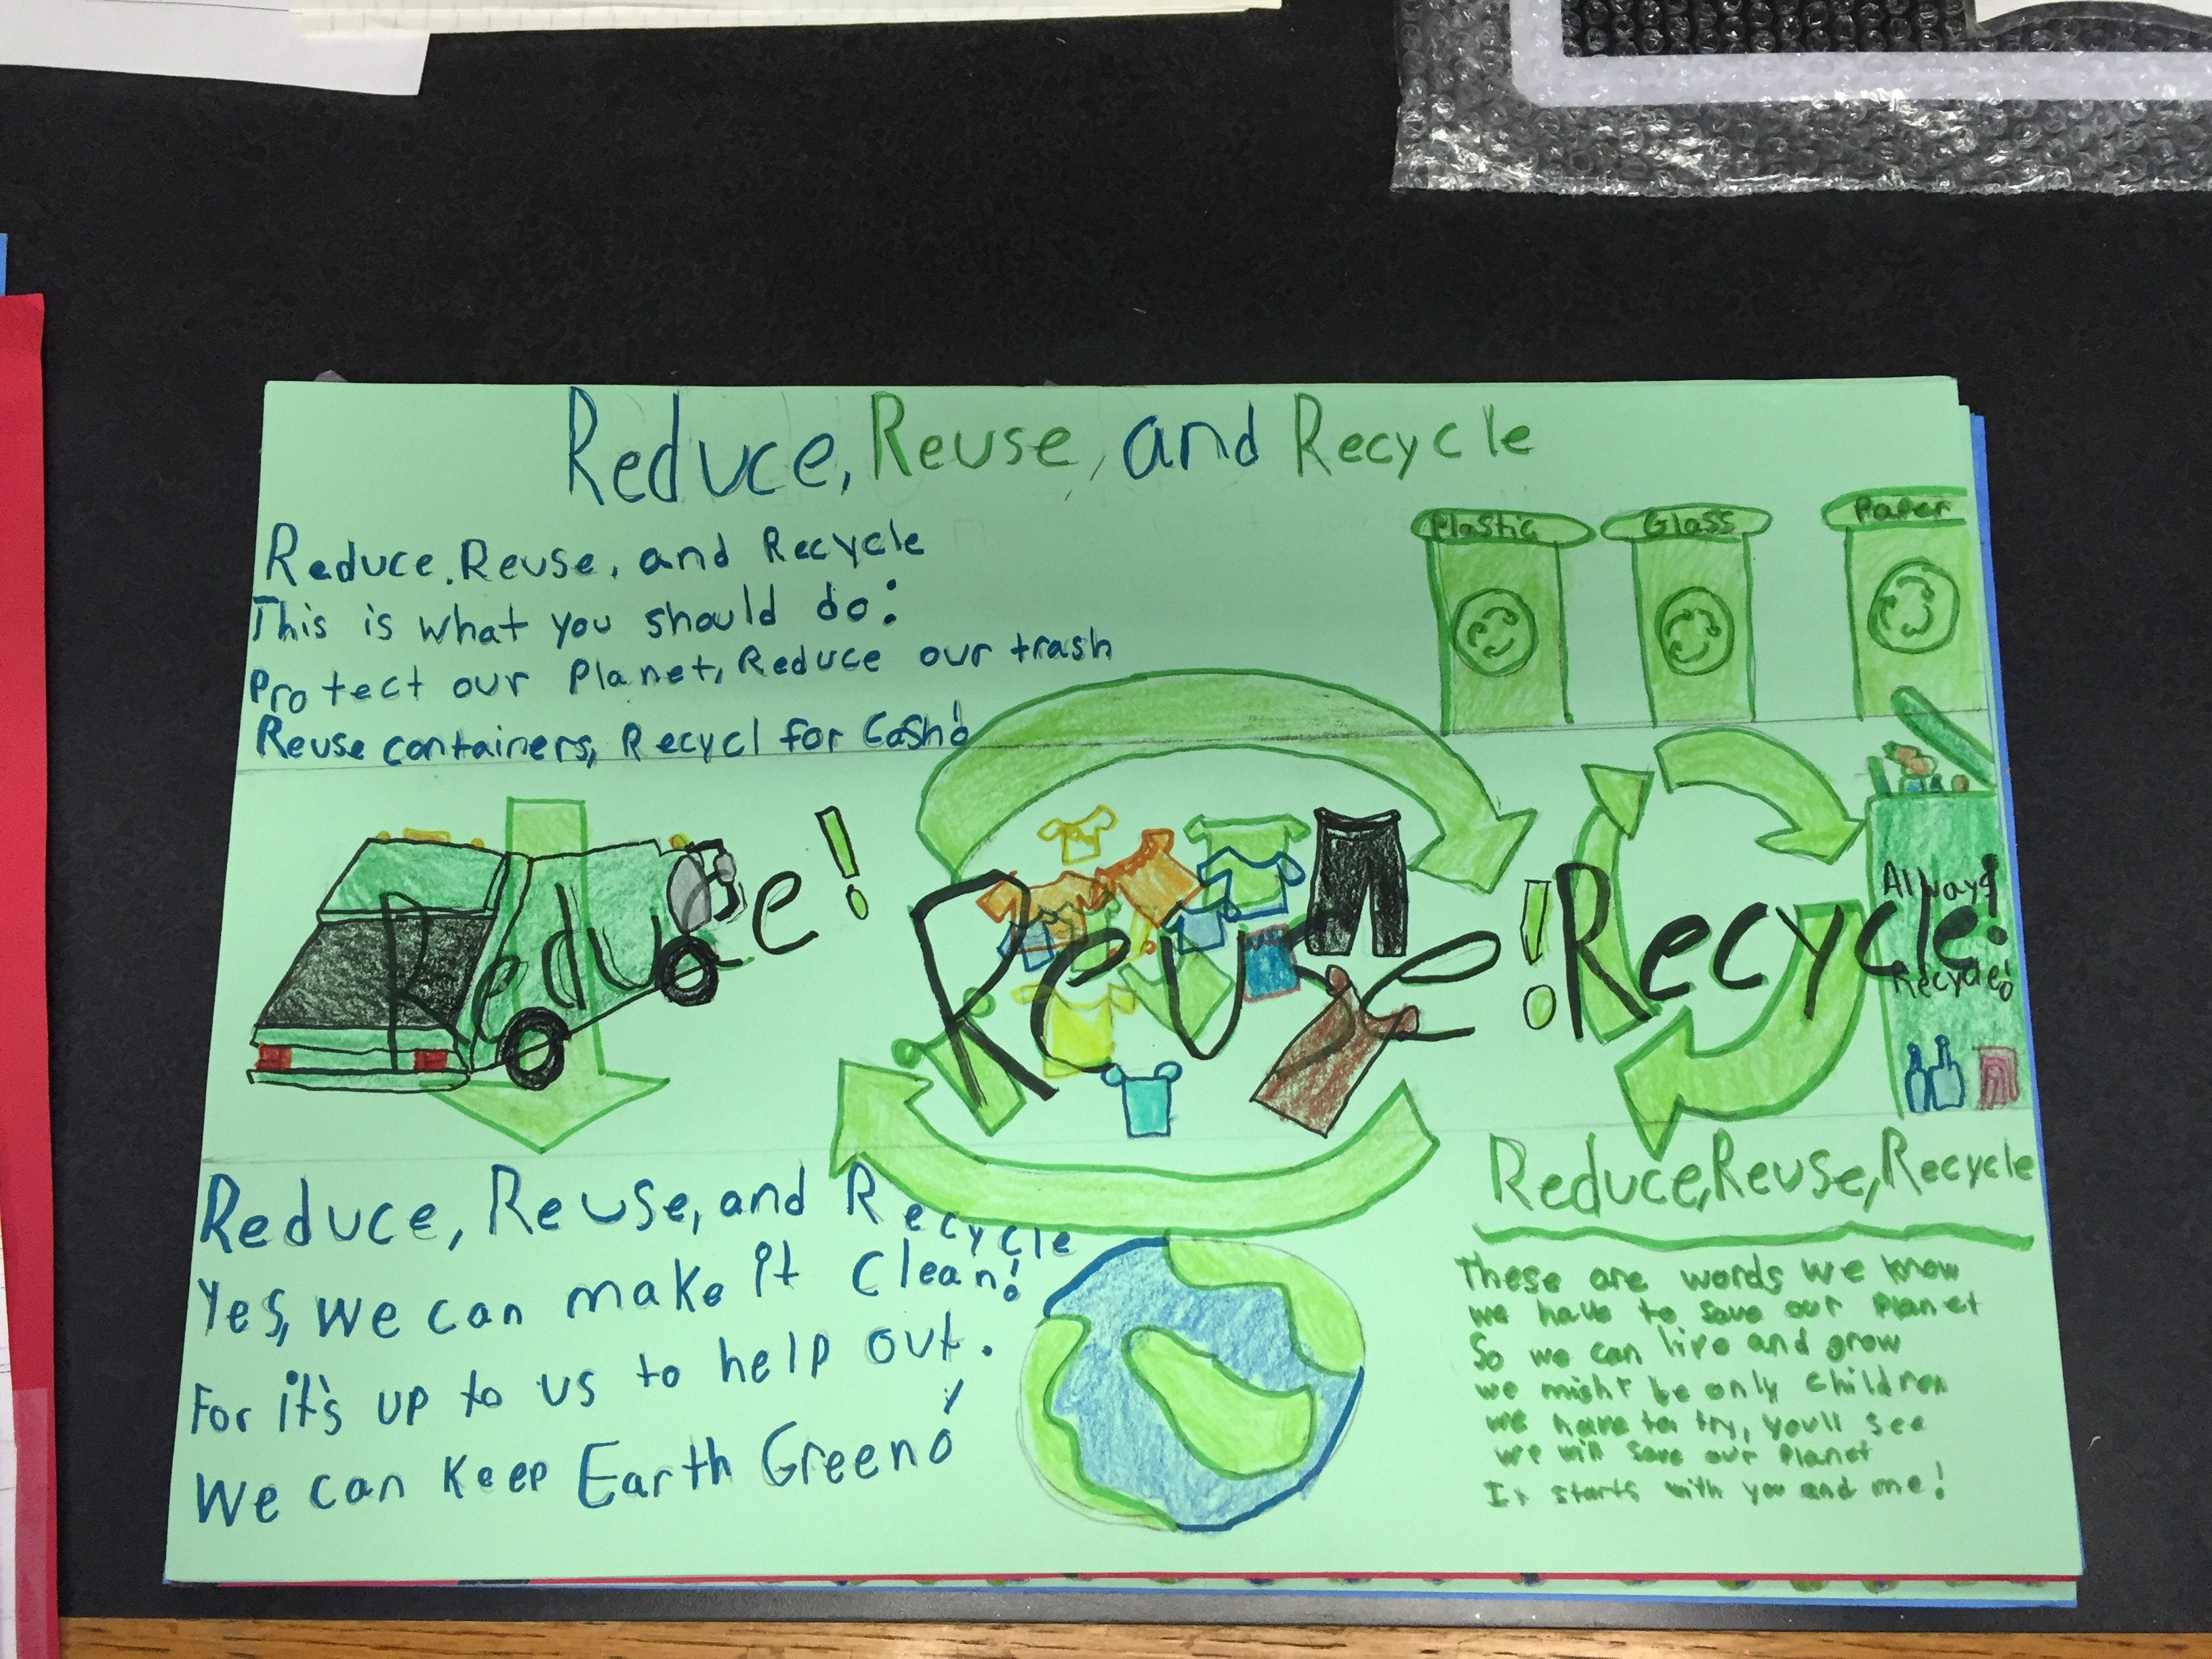 Reduce, Reuse, and Recycle
Reduce, Reuse, and Recycle
This is what you should do:
Protect our Planet, Reduce our trash
Reuse containers, Recycl for Cash!
Plastic
Glass
Paper
Reduce!
Reuse!
Recycle!
Always
Recycle!
Reduce, Reuse, and Recycle
Yes, we can make it clean!
For it's up to us to help out.
We can keep Earth Green!
Reduce, Reuse, Recycle
These are words we know
we have to save our planet
So we can live and grow
we might be only children
we have to try, you'll see
we will save our planet
It starts with you and me!